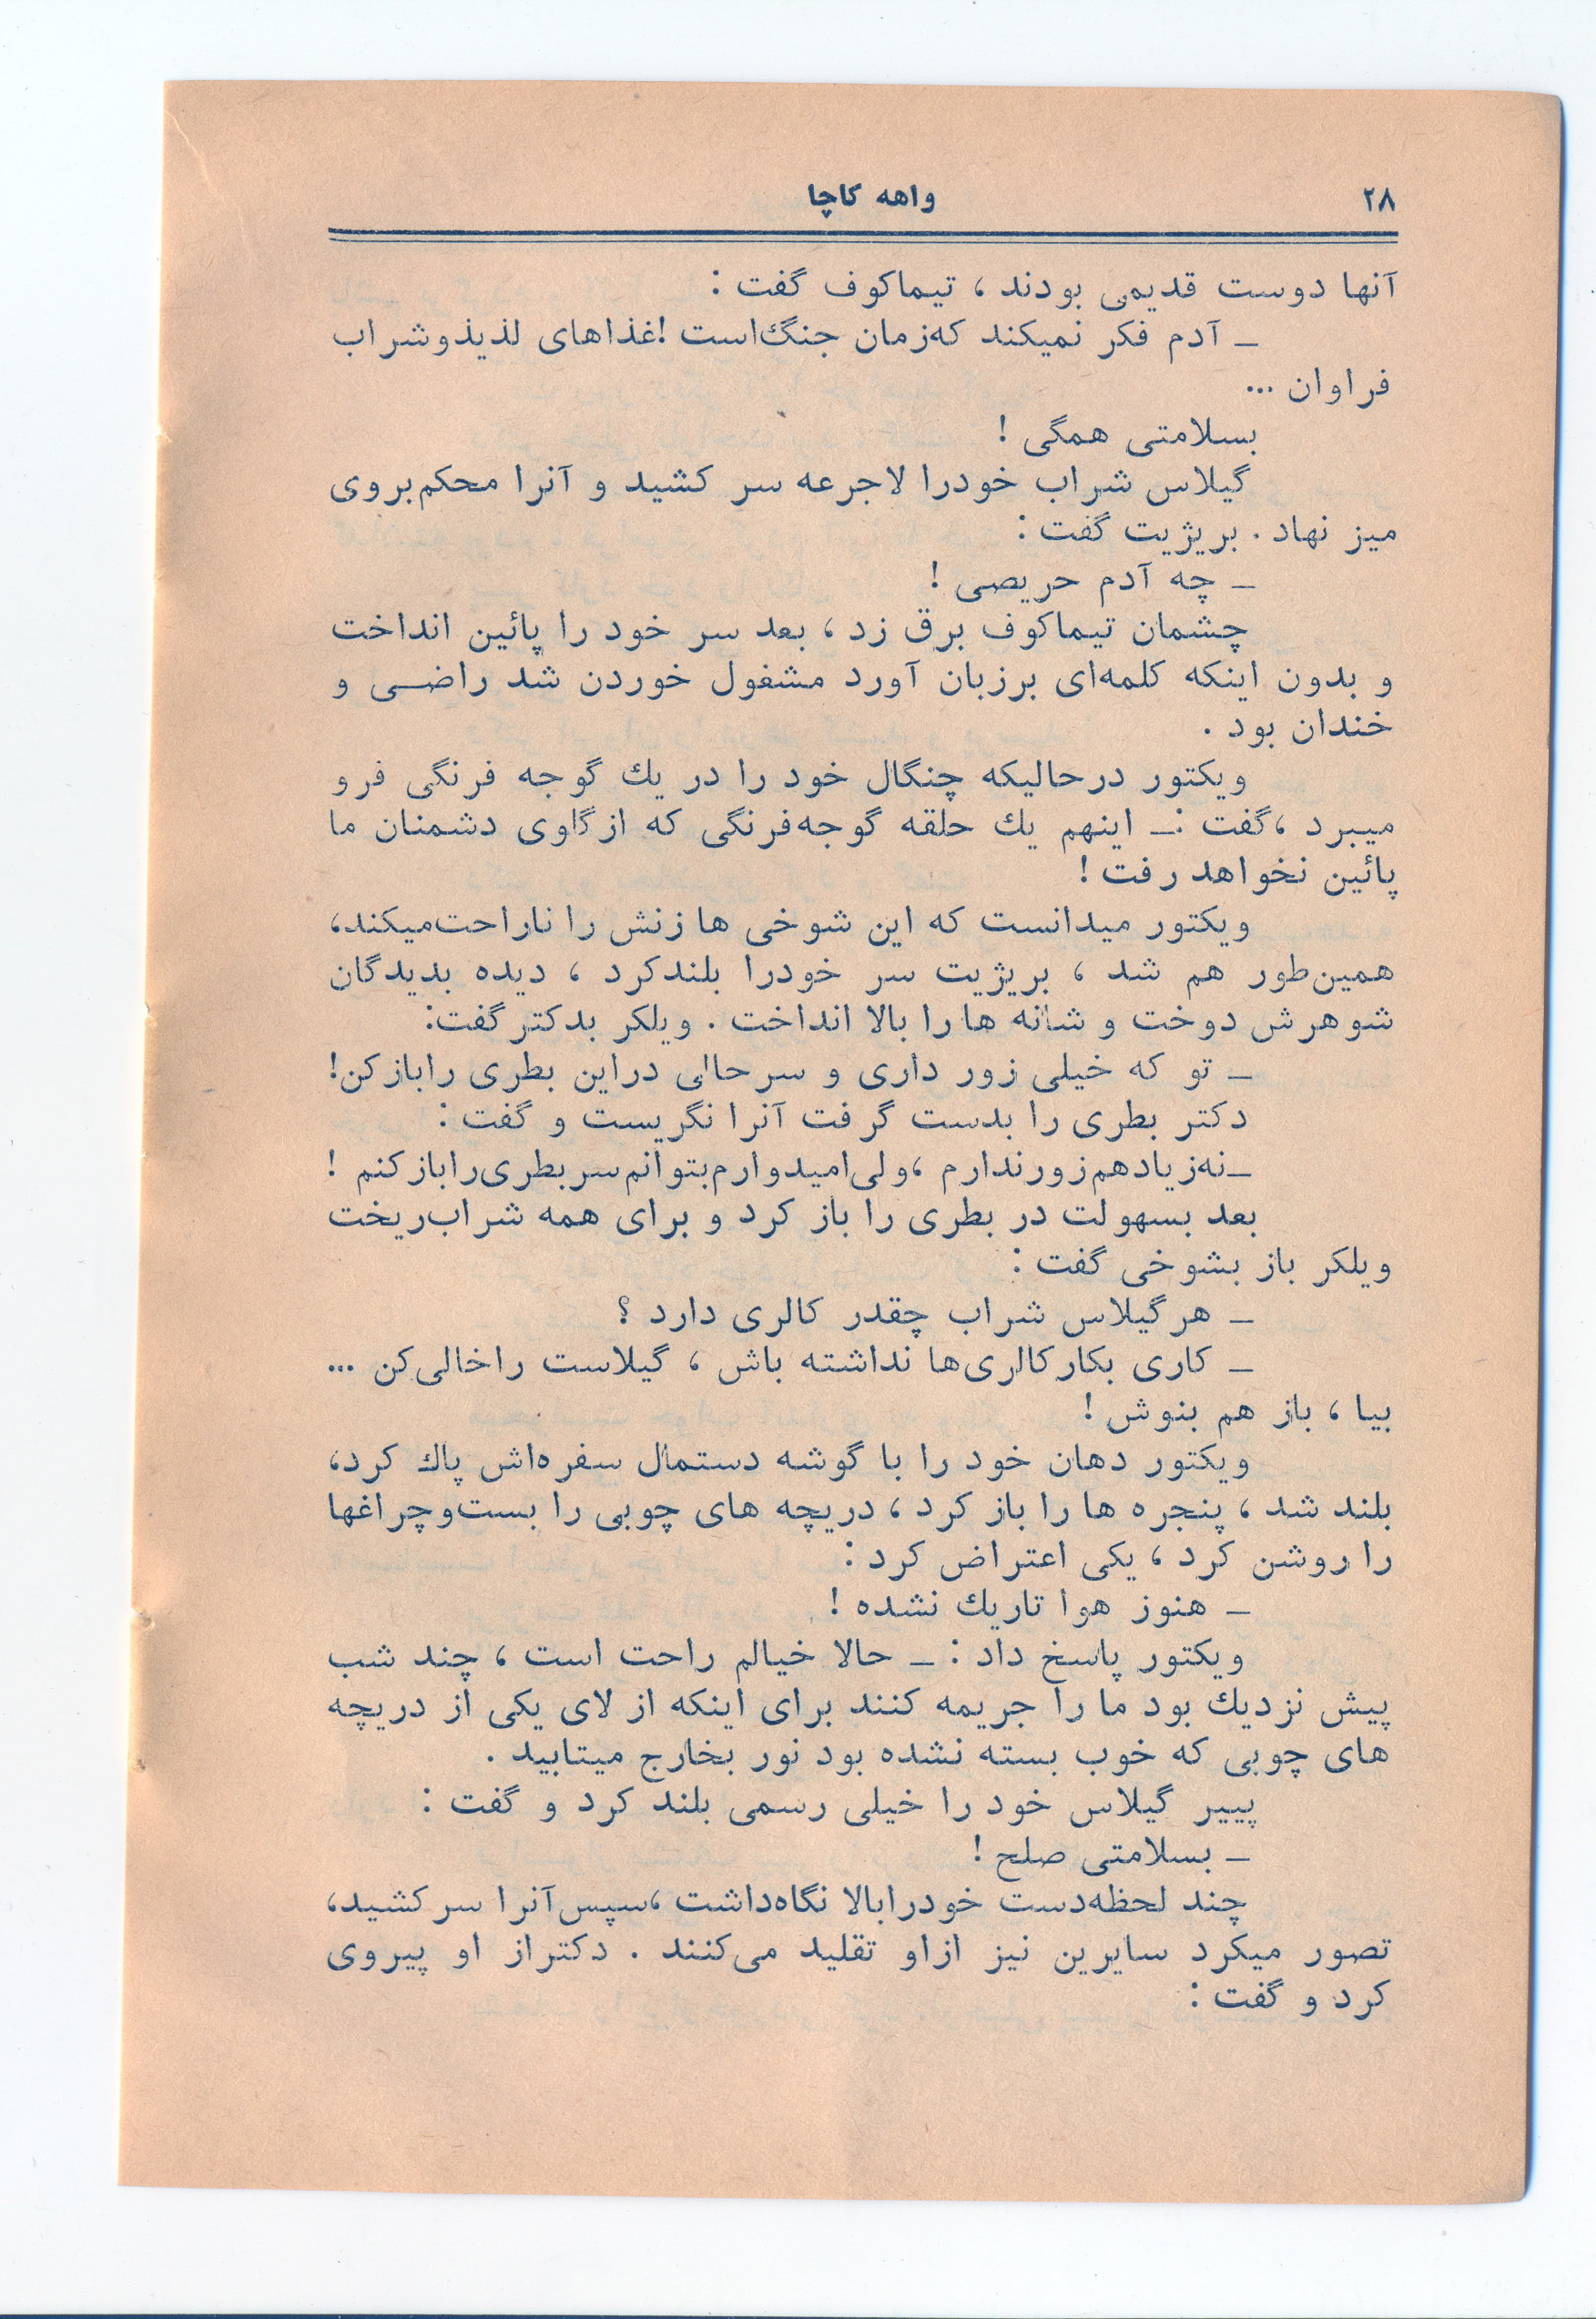 ۲۸
واهه کاچا
آنها دوست قدیمی بودند ، تیماکوف گفت :
ـ آدم فکر نمیکند که‌زمان جنگ‌است !غذاهای لذیذوشراب
فراوان ...
بسلامتی همگی !
گیلاس شراب خودرا لاجرعه سر کشید و آنرا محکم‌بروی
میز نهاد . بریژیت گفت :
ـ چه آدم حریصی !
چشمان تیماکوف برق زد ، بعد سر خود را پائین انداخت
و بدون اینکه کلمه‌ای برزبان آورد مشفول خوردن شد راضی و
خندان بود .
ویکتور درحالیکه چنگال خود را در یك گوجه فرنگی فرو
میبرد ،گفت :ـ اینهم یك حلقه گوجه‌فرنگی که ازگلوی دشمنان ما
پائین نخواهد رفت !
ویکتور میدانست که این شوخی ها زنش را ناراحت‌میکند،
همین‌طور هم شد ، بریژیت سر خودرا بلندکرد ، دیده بدیدگان
شوهرش دوخت و شانه ها را بالا انداخت . ویلکر بدکتر گفت:
ـ تو که خیلی زور داری و سرحالی دراین بطری رابازکن!
دکتر بطری را بدست گرفت آنرا نگریست و گفت :
ـ نه‌زیادهم‌زورندارم ،ولی‌امیدوارم‌بتوانم‌سربطری‌رابازکنم !
بعد بسهولت در بطری را باز کرد و برای همه شراب‌ریخت
ویلکر باز بشوخی گفت :
ـ هرگیلاس شراب چقدر کالری دارد ؟
ـ کاری بکارکالری‌ها نداشته باش ، گیلاست راخالی‌کن ...
بیا ، باز هم بنوش !
ویکتور دهان خود را با گوشه دستمال سفره‌اش پاك کرد،
بلند شد ، پنجره ها را باز کرد ، دریچه های چوبی را بست‌وچراغها
را روشن کرد ، یکی اعتراض کرد :
ـ هنوز هوا تاریك نشده !
ویکتور پاسخ داد : ـ حالا خیالم راحت است ، چند شب
پیش نزدیك بود ما را جریمه کنند برای اینکه از لای یکی از دریچه
های چوبی که خوب بسته نشده بود نور بخارج میتابید .
پییر گیلاس خود را خیلی رسمی بلند کرد و گفت :
ـ بسلامتی صلح !
چند لحظه‌دست خودرابالا نگاه‌داشت ،سپس‌آنرا سرکشید،
تصور میکرد سایرین نیز ازاو تقلید می‌کنند . دکتراز او پیروی
کرد و گفت :